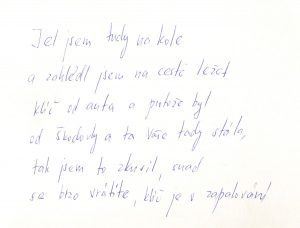 Jel jsem tudy na kole
a zahlédl jsem na cestě ležet
klíč od auta a protože byl
od Škodovky a ta Vaše tady stála,
tak jsem to zkusil, snad
se brzo vrátíte, klíč je v zapalování